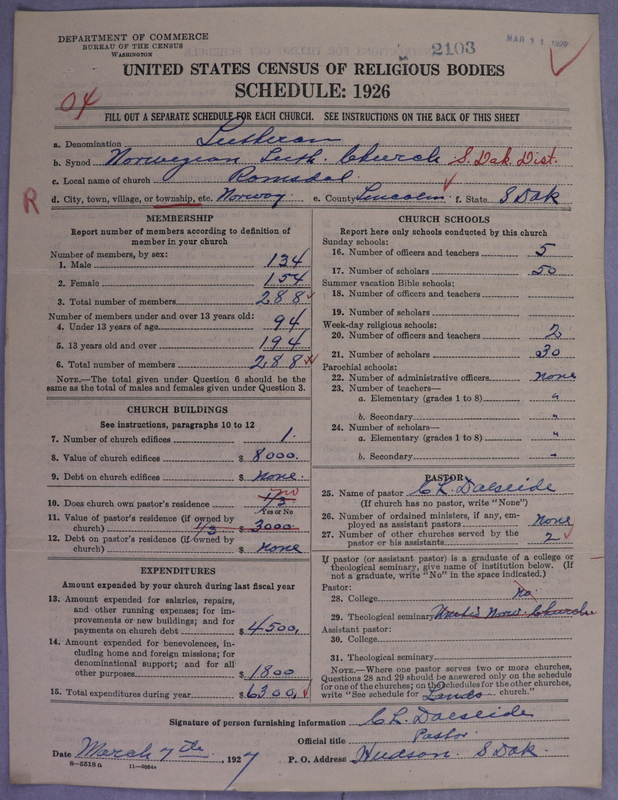 DEPARTMENT OF COMMERCE
BUREAU OF THE CENSUS
WASHINGTON
2103
MAR 11 1927
UNITED STATES CENSUS OF RELIGIOUS BODIES
SCHEDULE: 1926
04
FILL OUT A SEPARATE SCHEDULE FOR EACH CHURCH. SEE INSTRUCTIONS ON THE BACK OF THIS SHEET
a. Denomination Lutheran
b. Synod Norwegian Luth. Church S. Dak. Dist.
c. Local name of church Romsdal
R
d. City, town, village, or township, etc. Norway e. County Lincoln f. State S Dak
MEMBERSHIP
Report number of members according to definition of member in your church
Number of members, by sex:
1. Male 134
2. Female 154
3. Total number of members 288
Number of members under and over 13 years old:
4. Under 13 years of age 94
5. 13 years old and over 194
6. Total number of members 288
NOTE.—The total given under Question 6 should be
same as the total of males and females given under Question 3.
CHURCH BUILDINGS
See instructions, paragraphs 10 to 12
7. Number of church edifices 1.
8. Value of church edifices $ 8000.
9. Debt on church edifices $ none.
10. Does church own pastor's residence no 1/3
Yes or No
11. Value of pastor's residence (if owned by
church) 1/3 $ 3000
12. Debt on pastor's residence (if owned by
church) $ none
EXPENDITURES
Amount expended by your church during last fiscal year
13. Amount expended for salaries, repairs,
and other running expenses; for im-
provements or new buildings; and for
payments on church debt $ 4500,
14. Amount expended for benevolences, in-
cluding home and foreign missions; for
denominational support; and for all
other purposes $ 1800
15. Total expenditures during year $ 6300,
CHURCH SCHOOLS
Report here only schools conducted by this church
Sunday schools:
16. Number of officers and teachers 5
17. Number of scholars 50
Summer vacation Bible schools:
18. Number of officers and teachers
19. Number of scholars
Week-day religious schools:
20. Number of officers and teachers 2
21. Number of scholars 30
Parochial schools:
22. Number of administrative officers none
23. Number of teachers—
a. Elementary (grades 1 to 8) "
b. Secondary "
24. Number of scholars—
a. Elementary (grades 1 to 8) "
b. Secondary "
PASTOR
25. Name of pastor C L Dalseide
(If church has no pastor, write "None")
26. Number of ordained ministers, if any, em-
ployed as assistant pastors none
27. Number of other churches served by the
pastor or his assistants 2
If pastor (or assistant pastor) is a graduate of a college or
theological seminary, give name of institution below. (If
not a graduate, write "No" in the space indicated.)
Pastor:
28. College no.
29. Theological seminary Norw. Church
Assistant pastor:
30. College
31. Theological seminary
NOTE.—Where one pastor serves two or more churches,
Questions 28 and 29 should be answered only on the schedule
for one of the churches; on the schedules for the other churches,
write "See schedule for Lands church."
Signature of person furnishing information C L Dalseide
Official title Pastor
Date March 7th, 1927 P. O. Address Hudson. S Dak.
8-5518a 11-9884